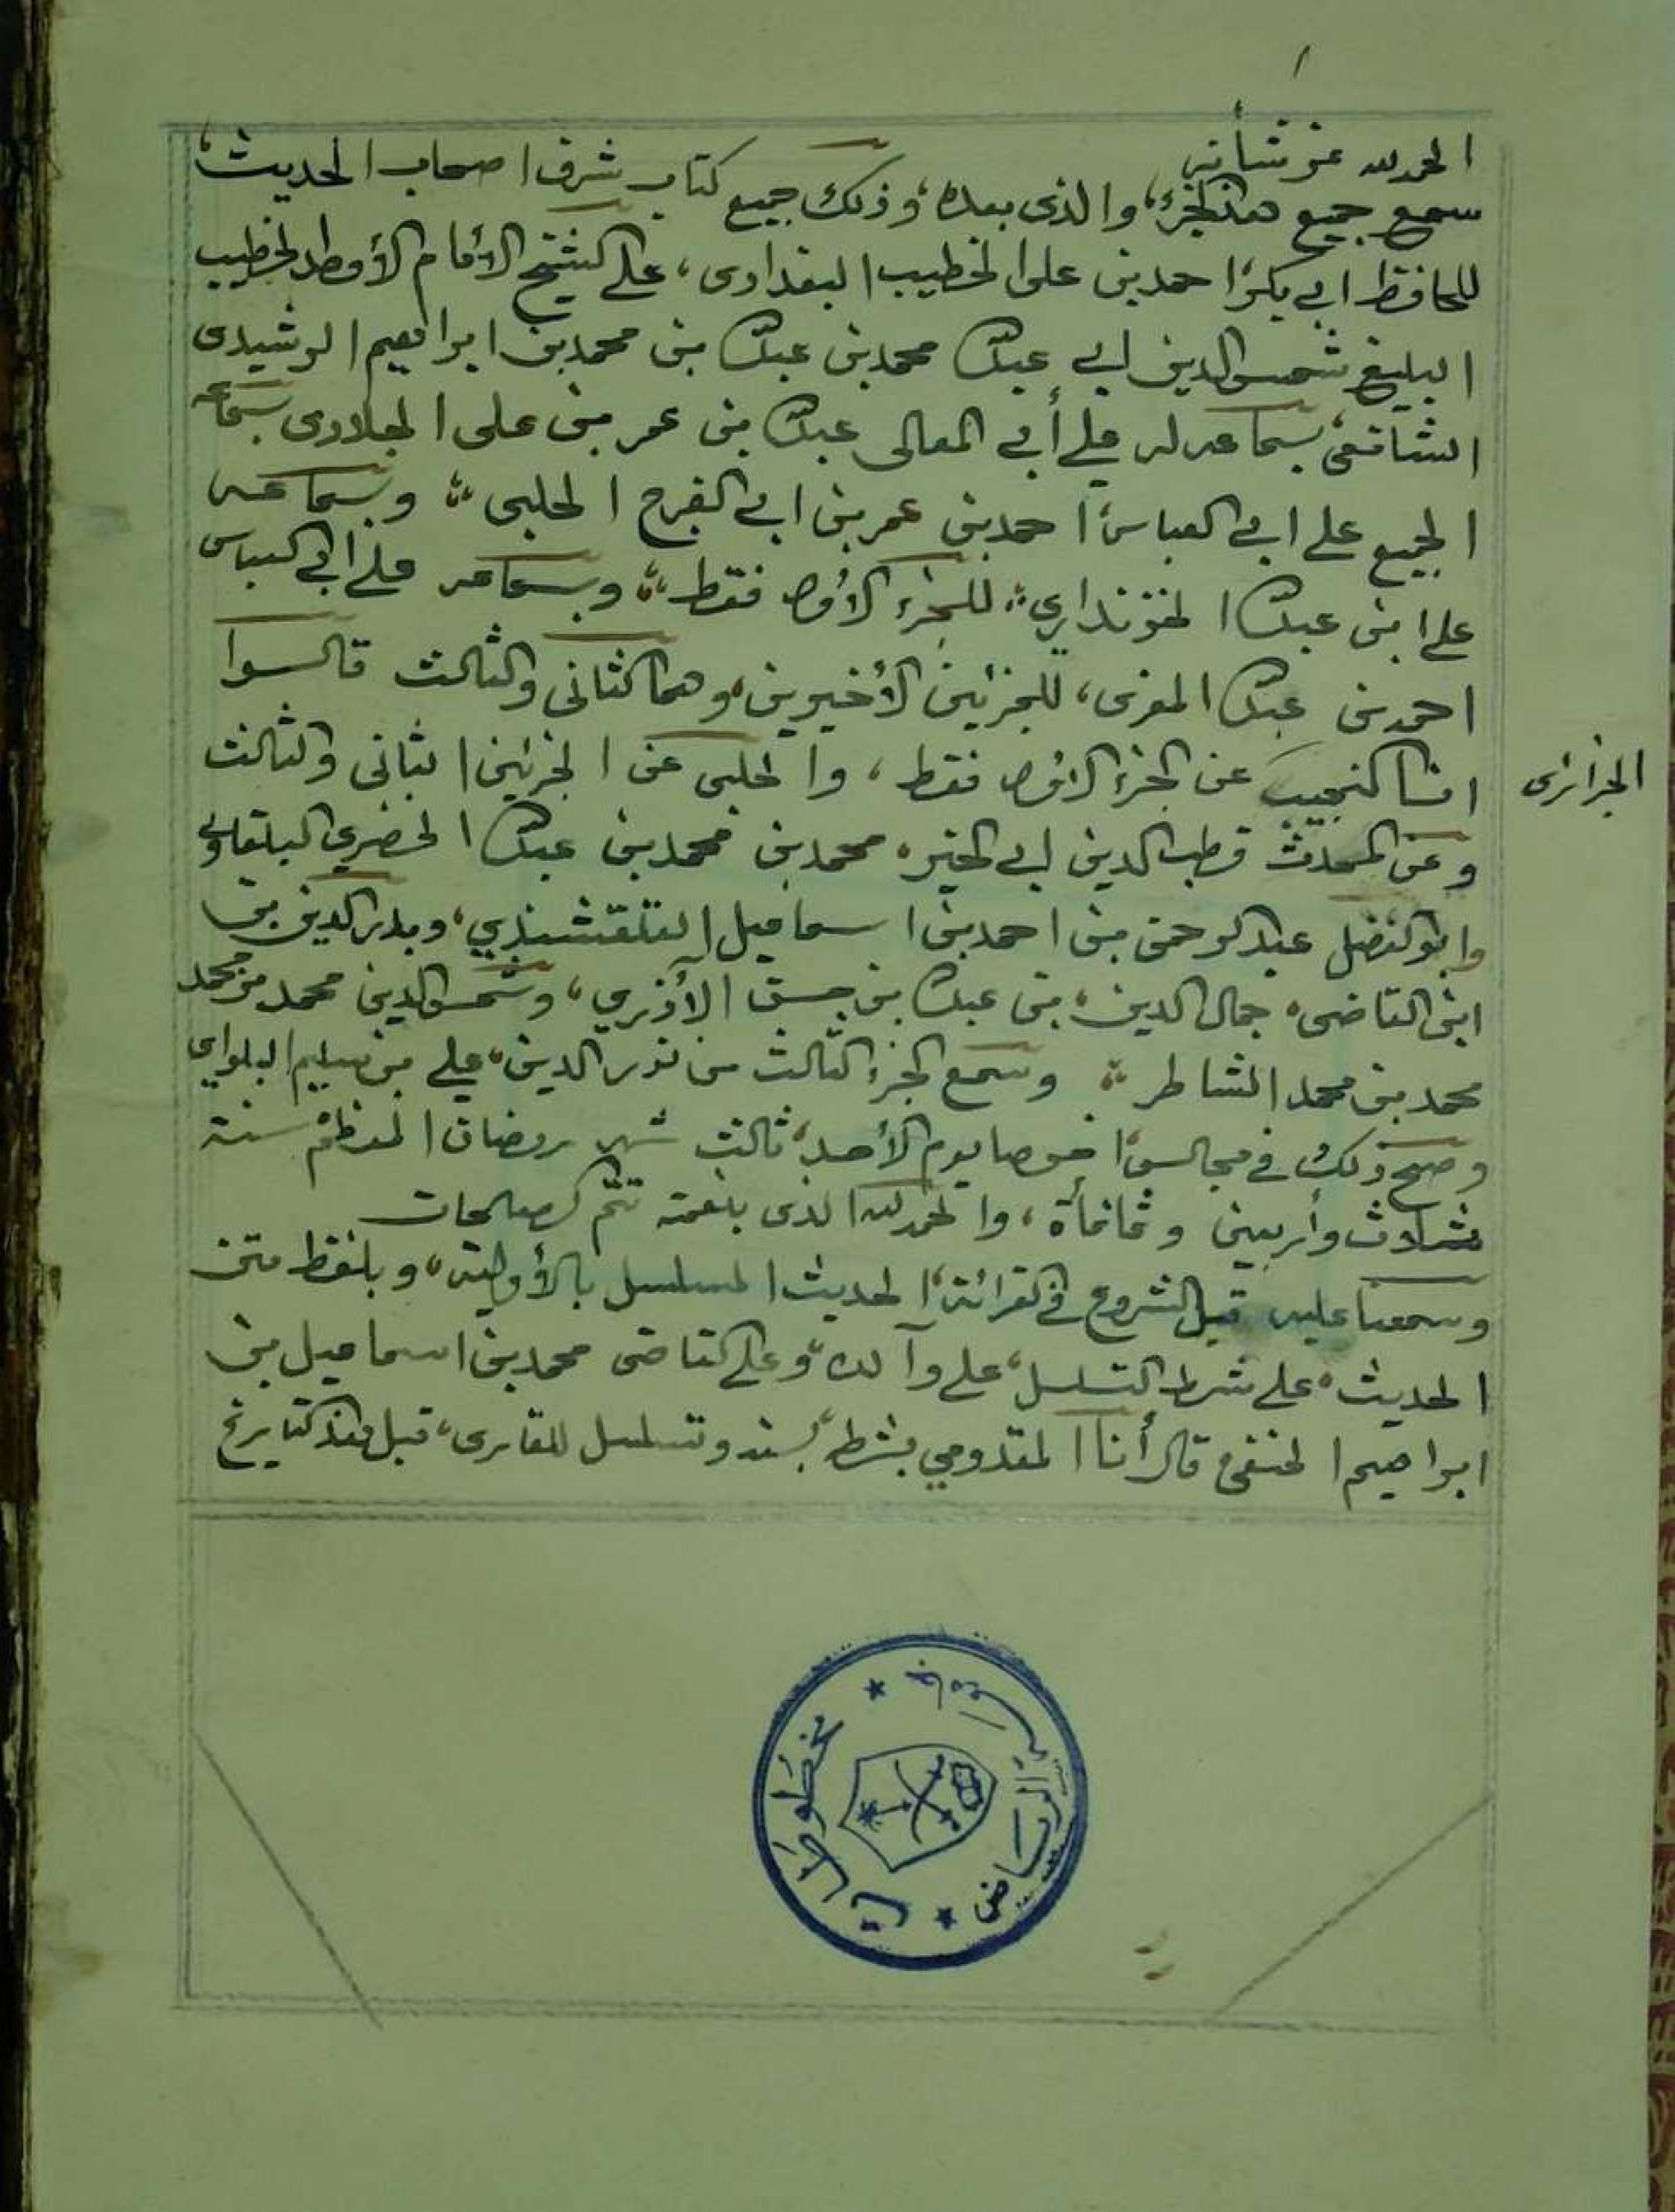 ١
الحمد لله عز شأنه
سمع جميع هذا الجزء، والذى بعده، وذلك جميع كتاب شرف اصحاب الحديث،
للحافظ ابي بكر، احمد بن على الخطيب البغدادى، على الشيخ الأمام الأوحد الخطيب
البليغ شمس الدين ابي عبد الله محمد بن عبد الله بن محمد بن ابراهيم الرشيدى
الشافعى، بسماعه له على أبي المعالى عبد الله بن عمر بن على الحلاوى بسماعه
الجميع على ابي العباس، احمد بن عمر بن ابي الفرج الحلبى، وبسماعه
على ابن عبد الله الخونداري، للجزء الأول فقط، وبسماعه على ابي العباس
احمد بن عبد الله المغرى، للجزئين الأخيرين، وهما الثانى والثالث قالوا
انا النجيب عن الجزء الاول فقط، والحلبى عن الجزئين الثانى والثالث
الجزائرى
وعن المحدث قطب الدين ابي الخير، محمد بن محمد بن عبد الله الخضري البلقاوي
وابو الفضل عبد الرحمن بن احمد بن اسماعيل القلقشندي، وبدر الدين بن
ابن القاضى، جمال الدين، بن عبد الله بن حسن الأذري، وشمس الدين محمد بن محمد
محمد بن محمد الشاطر، وسمع الجزء الثالث من نور الدين، علي بن سليم البلواي
وصح ذلك في مجالس، اخرها يوم الأحد، ثالث شهر رمضان المعظم سنة
ثلاث وأربعين وثمانمأة، والحمد لله الذى بنعمته تتم الصالحات
وسمعنا عليه قبل الشروع في القرائة، الحديث المسلسل بالأولية، وبلفظ متن
الحديث، على شرط التسلسل، على وآلده، وعلى القاضى محمد بن اسماعيل بن
ابراهيم الحنفى قال أنا المقدومي بشرط، بسنده وتسلسل للقارى، قبل هذا التاريخ
جامعة الرياض
مخطوطات